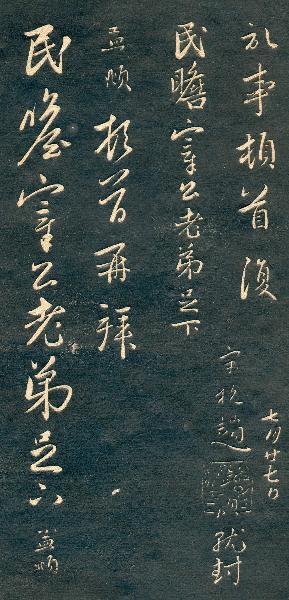 事頓首復
民瞻宰公老弟足下
七月廿七日
趙孟頫封
孟頫頓首再拜
民瞻宰公老弟足下 孟頫